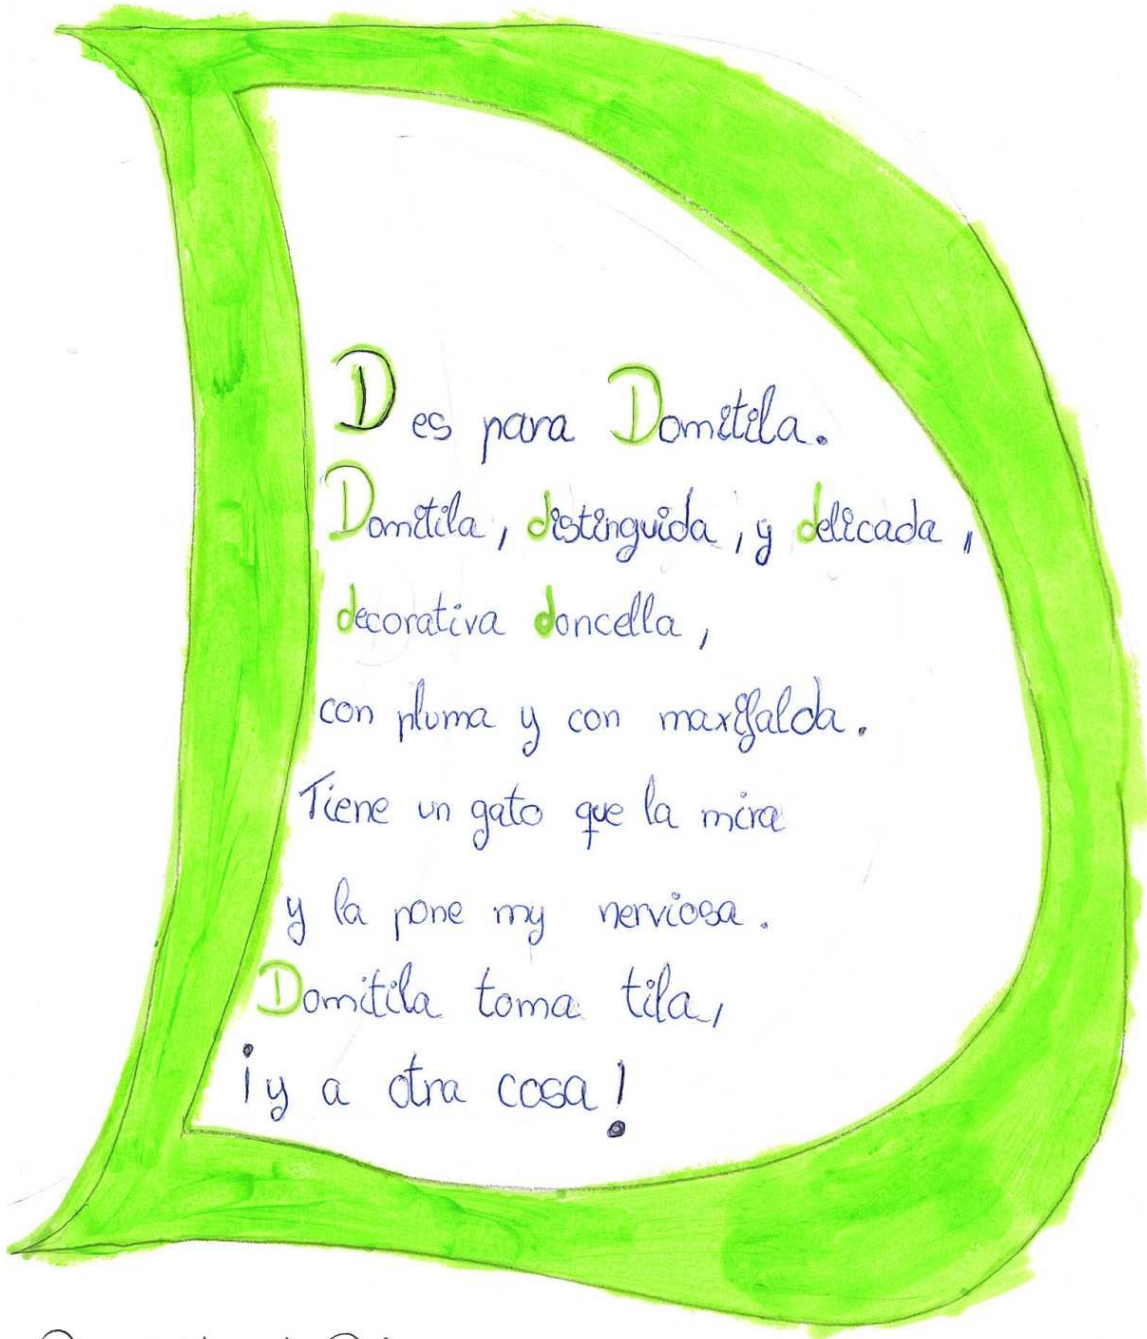 D es para Domitila.
Domitila, distinguida, y delicada,
decorativa doncella,
con pluma y con maxifalda.
Tiene un gato que la mira
y la pone my nerviosa.
Domitila toma tila,
¡y a otra cosa!